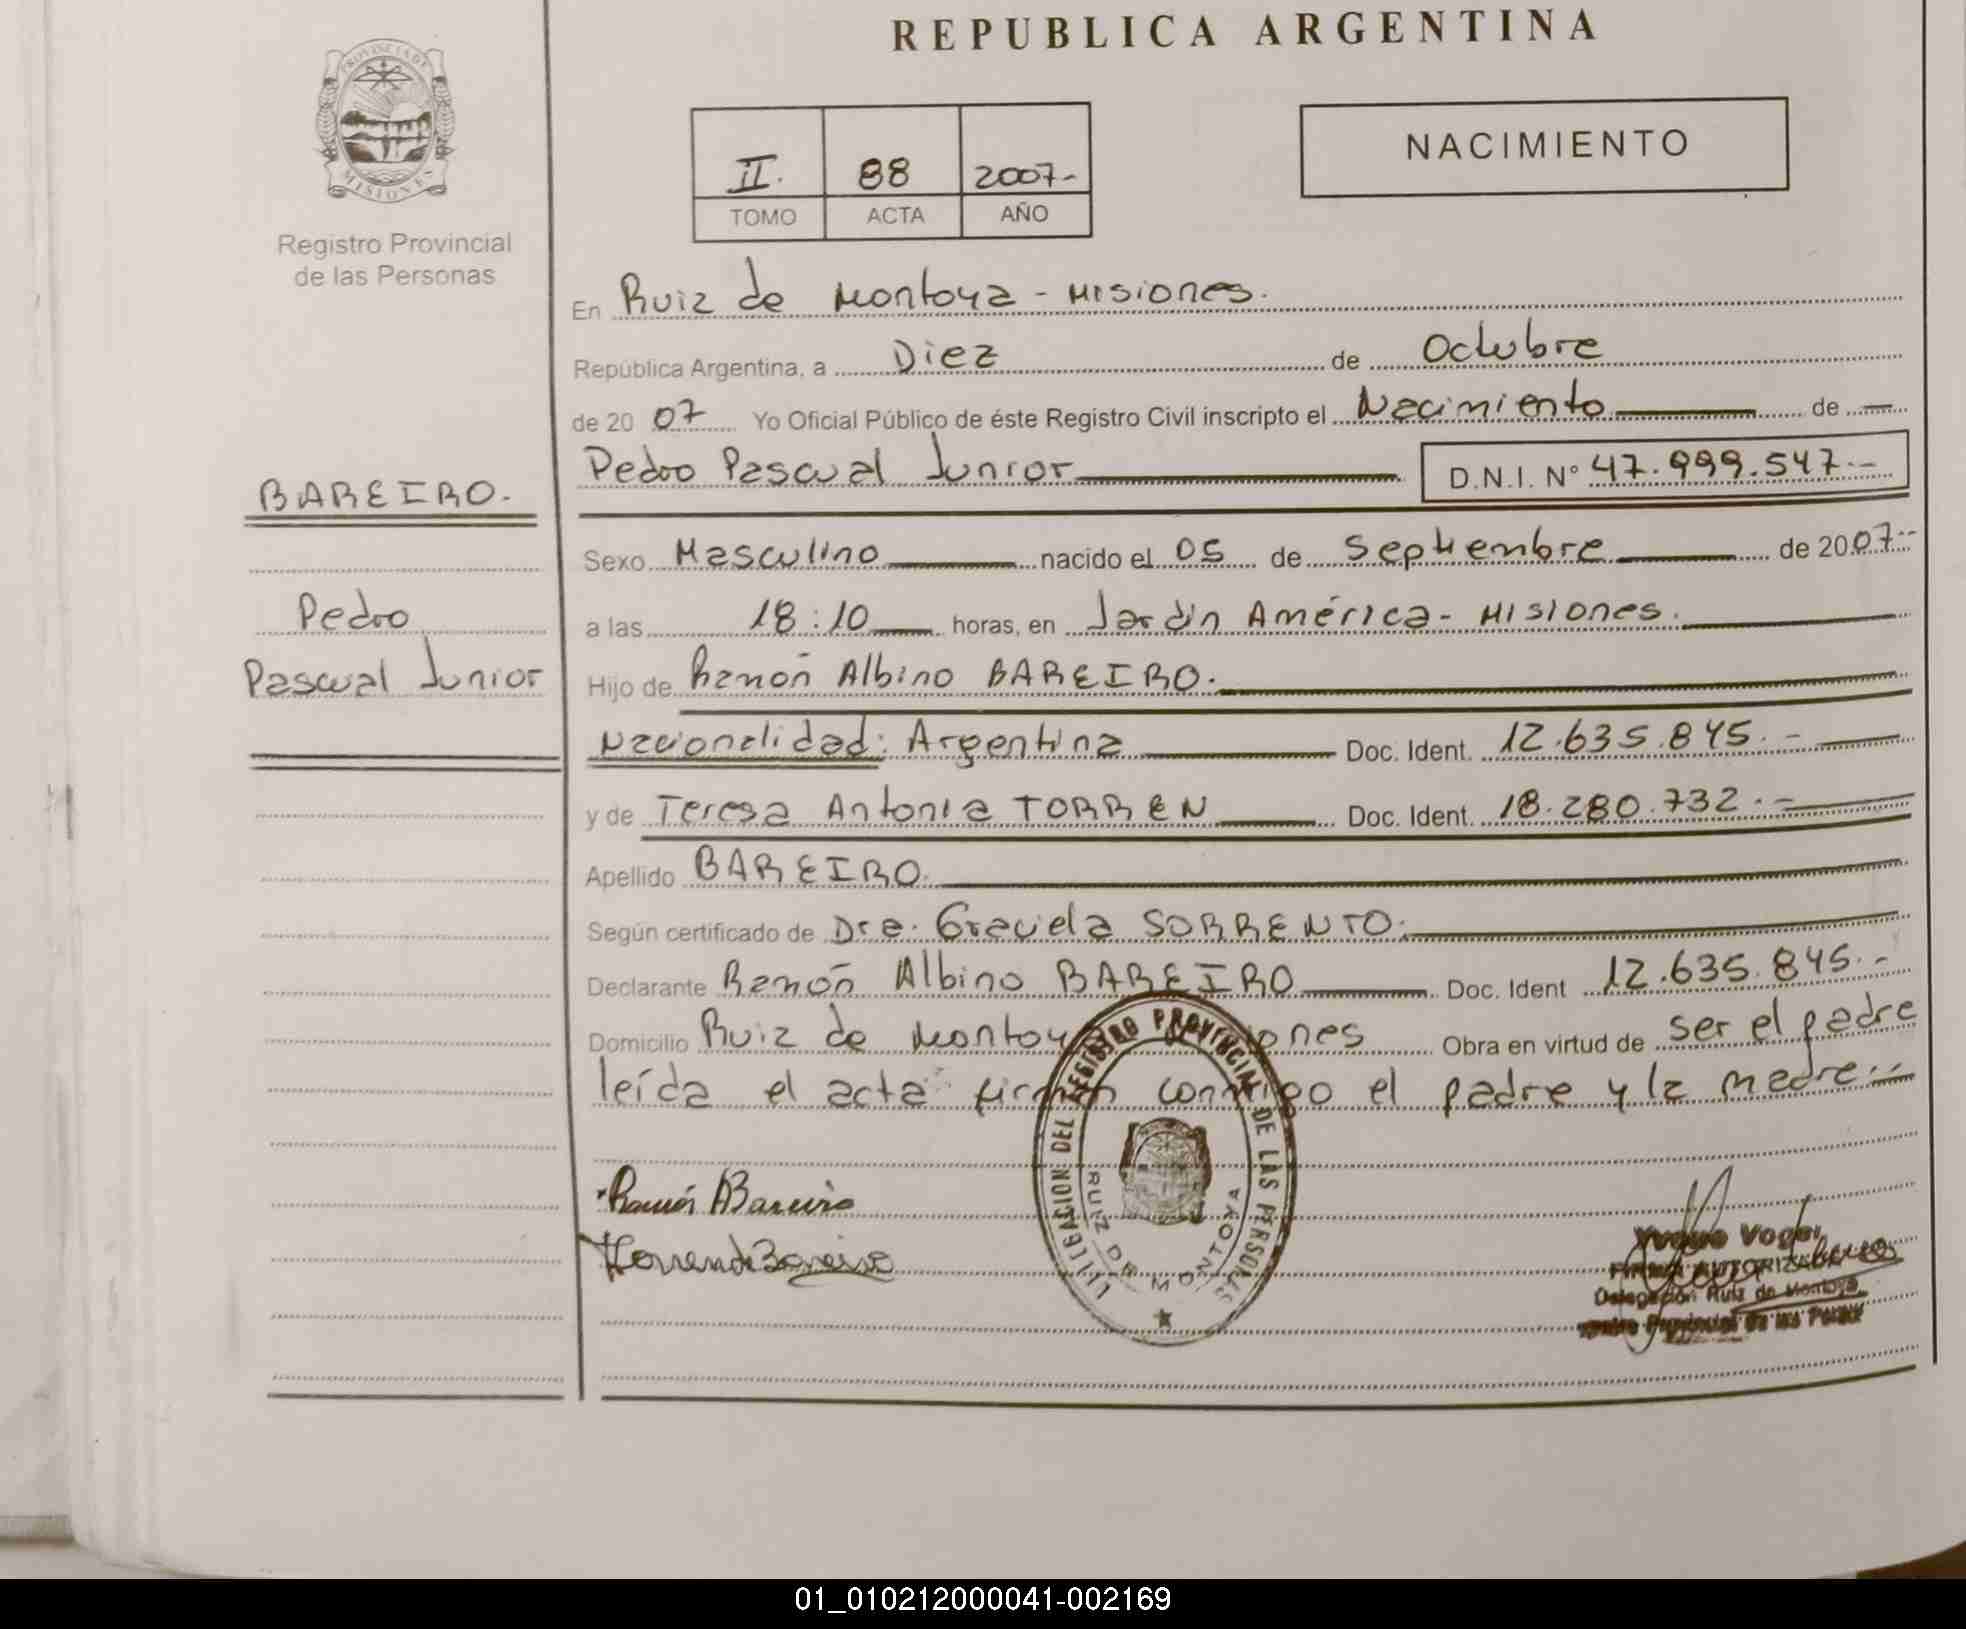 REPUBLICA ARGENTINA
PROVINCIA DE
MISIONES
Registro Provincial
de las Personas
II. 88 2007-
TOMO ACTA AÑO
NACIMIENTO
En Ruiz de Montoya - Misiones.
República Argentina, a Diez de Octubre
de 20 07 Yo Oficial Público de éste Registro Civil inscripto el Nacimiento de
Pedro Pascual Junior D.N.I. N° 47.999.547.-
BAREIRO.
Pedro
Pascual Junior
Sexo Masculino nacido el 05 de Septiembre de 2007.-
a las 18:10 horas, en Jardín América - Misiones.
Hijo de Ramón Albino BAREIRO.
Nacionalidad: Argentina Doc. Ident. 12.635.845.-
y de Teresa Antonia TORREN Doc. Ident. 18.280.732.-
Apellido BAREIRO.
Según certificado de Dra. Graciela SORRENTO.
Declarante Ramón Albino BAREIRO Doc. Ident 12.635.845.-
Domicilio Ruiz de Montoya Misiones Obra en virtud de ser el padre
leída el acta firman conmigo el padre y la madre.-
Ramón Bareiro
DELEGACION DEL REGISTRO PROVINCIAL DE LAS PERSONAS
RUIZ DE MONTOYA
Vogel
FIRMA AUTORIZADA
Delegación Ruiz de Montoya
Provincial de las
01_010212000041-002169